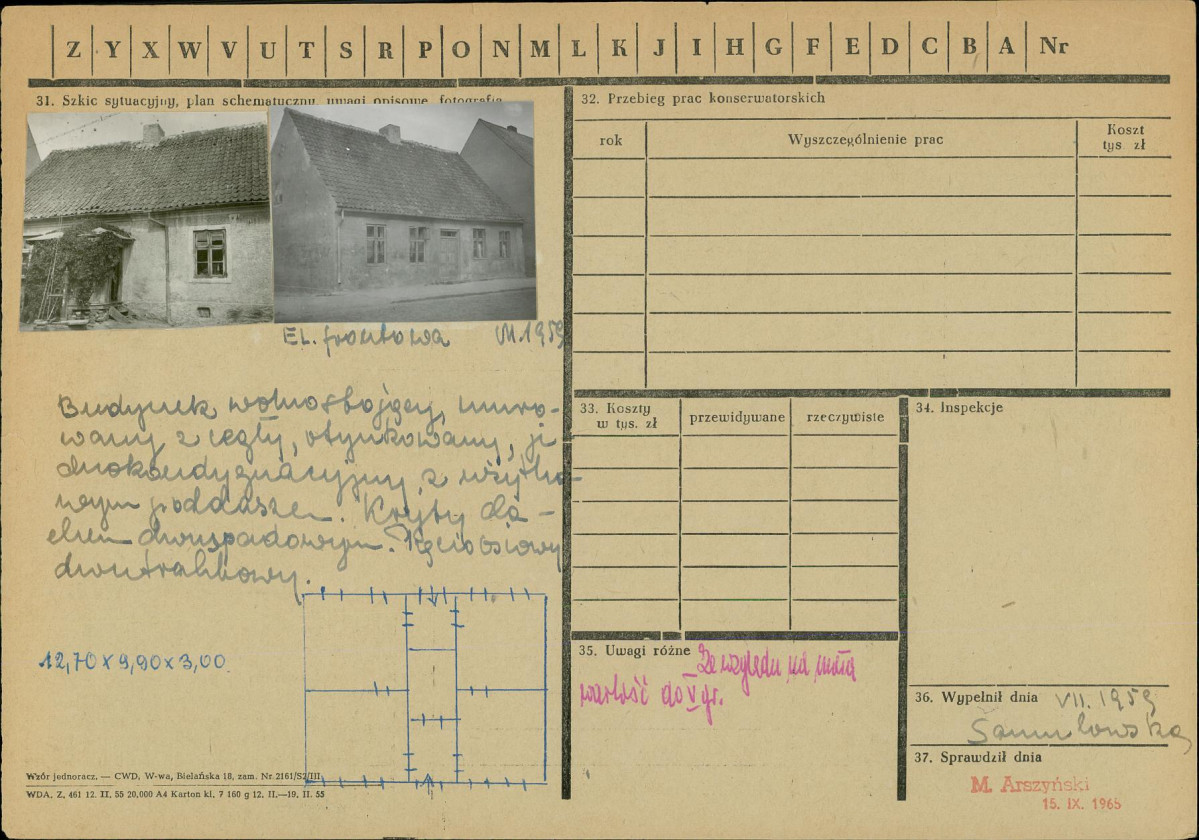 Z Y X W V U T S R P O N M Ł K J I H G F E D C B A Nr
31. Szkic sytuacyjny, plan schematyczny, uwagi opisowe, fotografia
El. frontowa VII.1959
Budynek wolnostojący, muro-
wany z cegły, otynkowany, je
dnokondygnacyjny, z użytko-
wym poddaszem. Kryty da-
chem dwuspadowym. Pięcioosiowy
dwutraktowy.
12,70 x 9,90 x 3,00
Wzór jednoracz. — CWD, W-wa, Bielańska 18, zam. Nr. 2161/52/III
WDA. Z. 461 12. II. 55 20.000 A4 Karton kl. 7 160 g 12. II.—19. II. 55
32. Przebieg prac konserwatorskich
rok Wyszczególnienie prac Koszt tys. zł
33. Koszty w tys. zł przewidywane rzeczywiste
34. Inspekcje
35. Uwagi różne Ze względu na małą
wartość do V gr.
36. Wypełnił dnia VII. 1959
37. Sprawdził dnia
M. Arszyński
15. IX. 1965